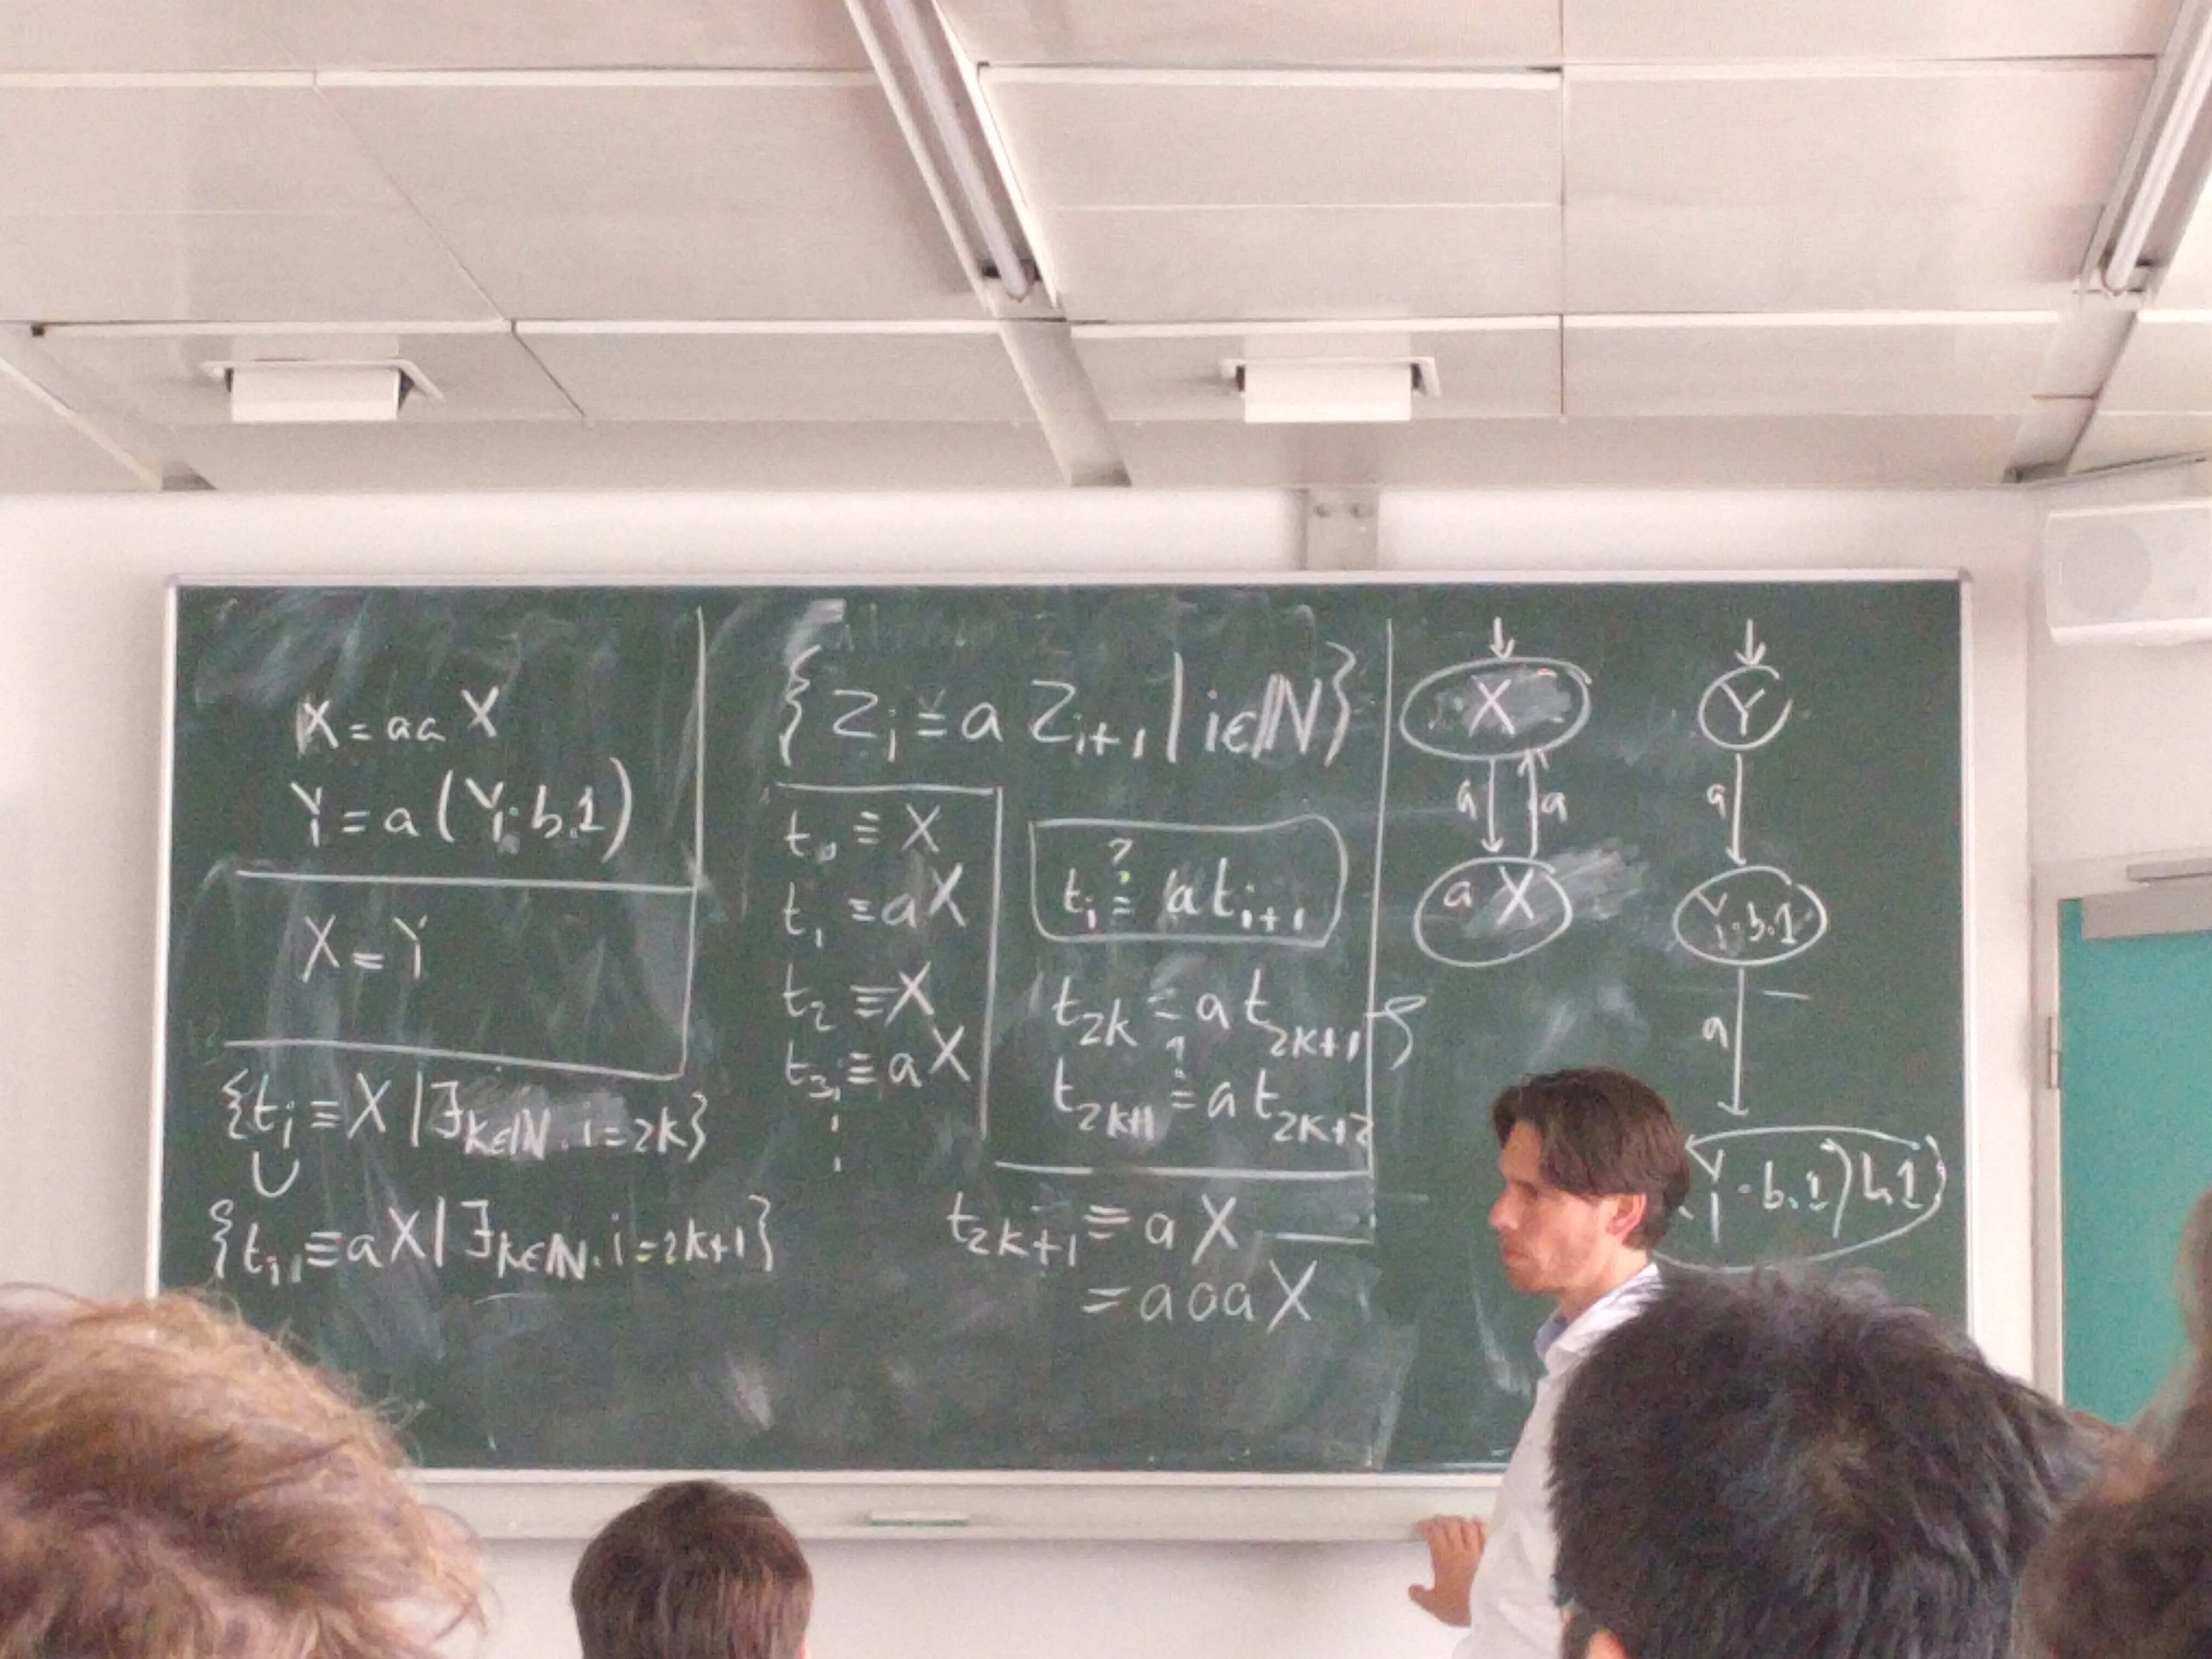 X = aa X
Y = a (Y · b.1)
X = Y
{t_i ≡ X | ∃_{k∈ℕ}. i = 2k}
∪
{t_i ≡ aX | ∃_{k∈ℕ}. i = 2k+1}
{Z_i = a Z_{i+1} | i∈ℕ}
t_0 ≡ X
t_1 ≡ aX
t_2 ≡ X
t_3 ≡ aX
⋮
t_i ≟ a t_{i+1}
t_{2k} = a t_{2k+1}
t_{2k+1} ≟ a t_{2k+2}
t_{2k+1} ≡ a X
= aaa X
X
a a
a X
Y
a
Y·b.1
a
Y · b.1) b.1)